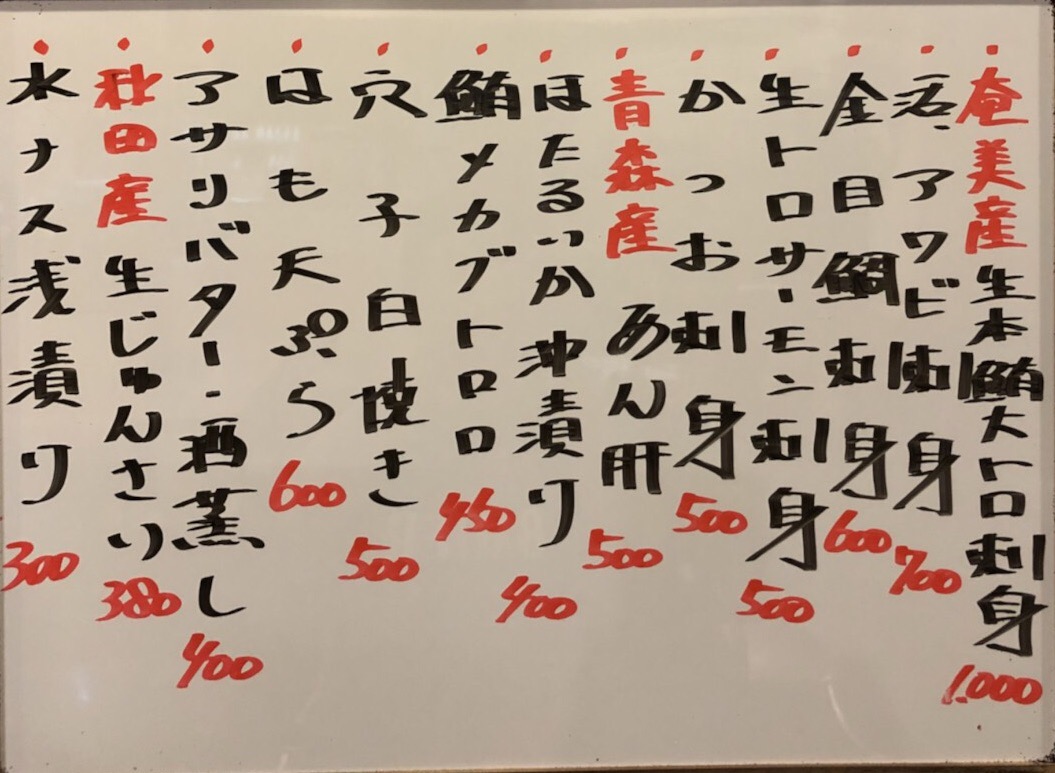 奄美産生本鮪大トロ刺身 1.000
活、アワビ刺身 700
金目鯛刺身 600
生トロサーモン刺身 500
かつお刺身 500
青森産 あん肝 500
ほたるいか沖漬り 400
鮪メカブトロロ 450
穴子白焼き 500
はも天ぷら 600
アサリバター・酒蒸し 400
秋田産生じゅんさい 380
水ナス浅漬り 300